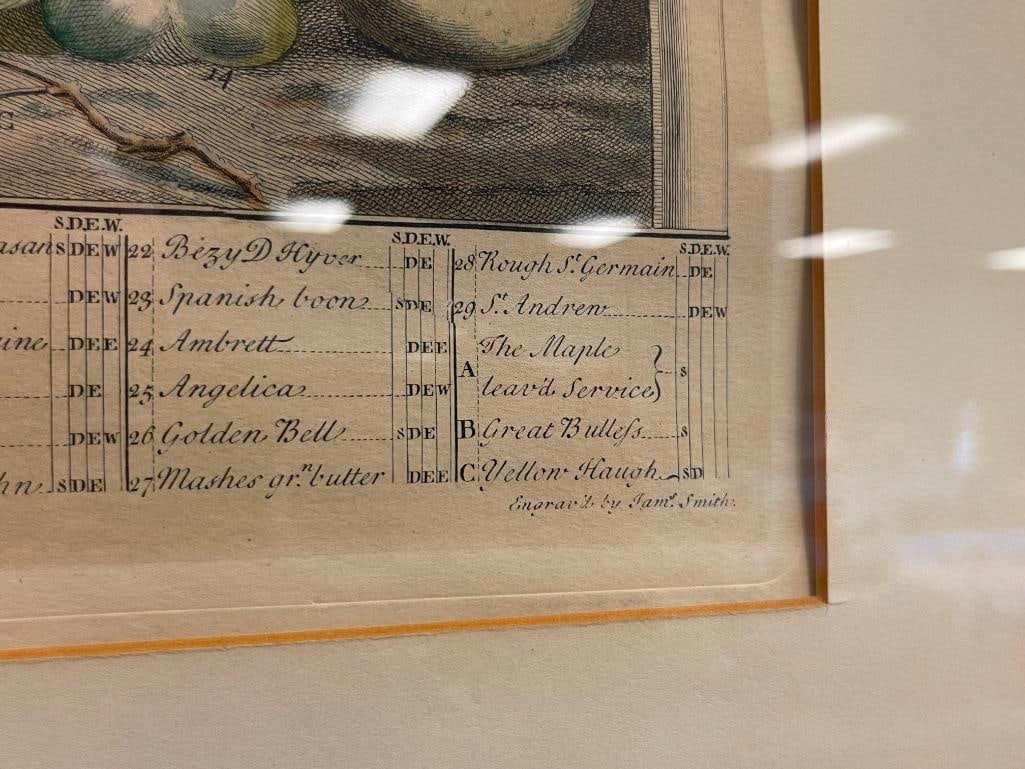 14
C
S.D.E.W.
asan S D E W
D E W
ine D E E
D E
D E W
hn S D E
S.D.E.W.
22 Bezy D Hyver D E
23 Spanish boon S D E
24 Ambrett D E E
25 Angelica D E W
26 Golden Bell S D E
27 Mashes gr.n butter D E E
S.D.E.W.
28 Rough St. Germain D E
29 St. Andrew D E W
A The Maple
leav'd Service } S
B Great Bulleſs S
C Yellow Haugh S D
Engrav'd by Jams. Smith.